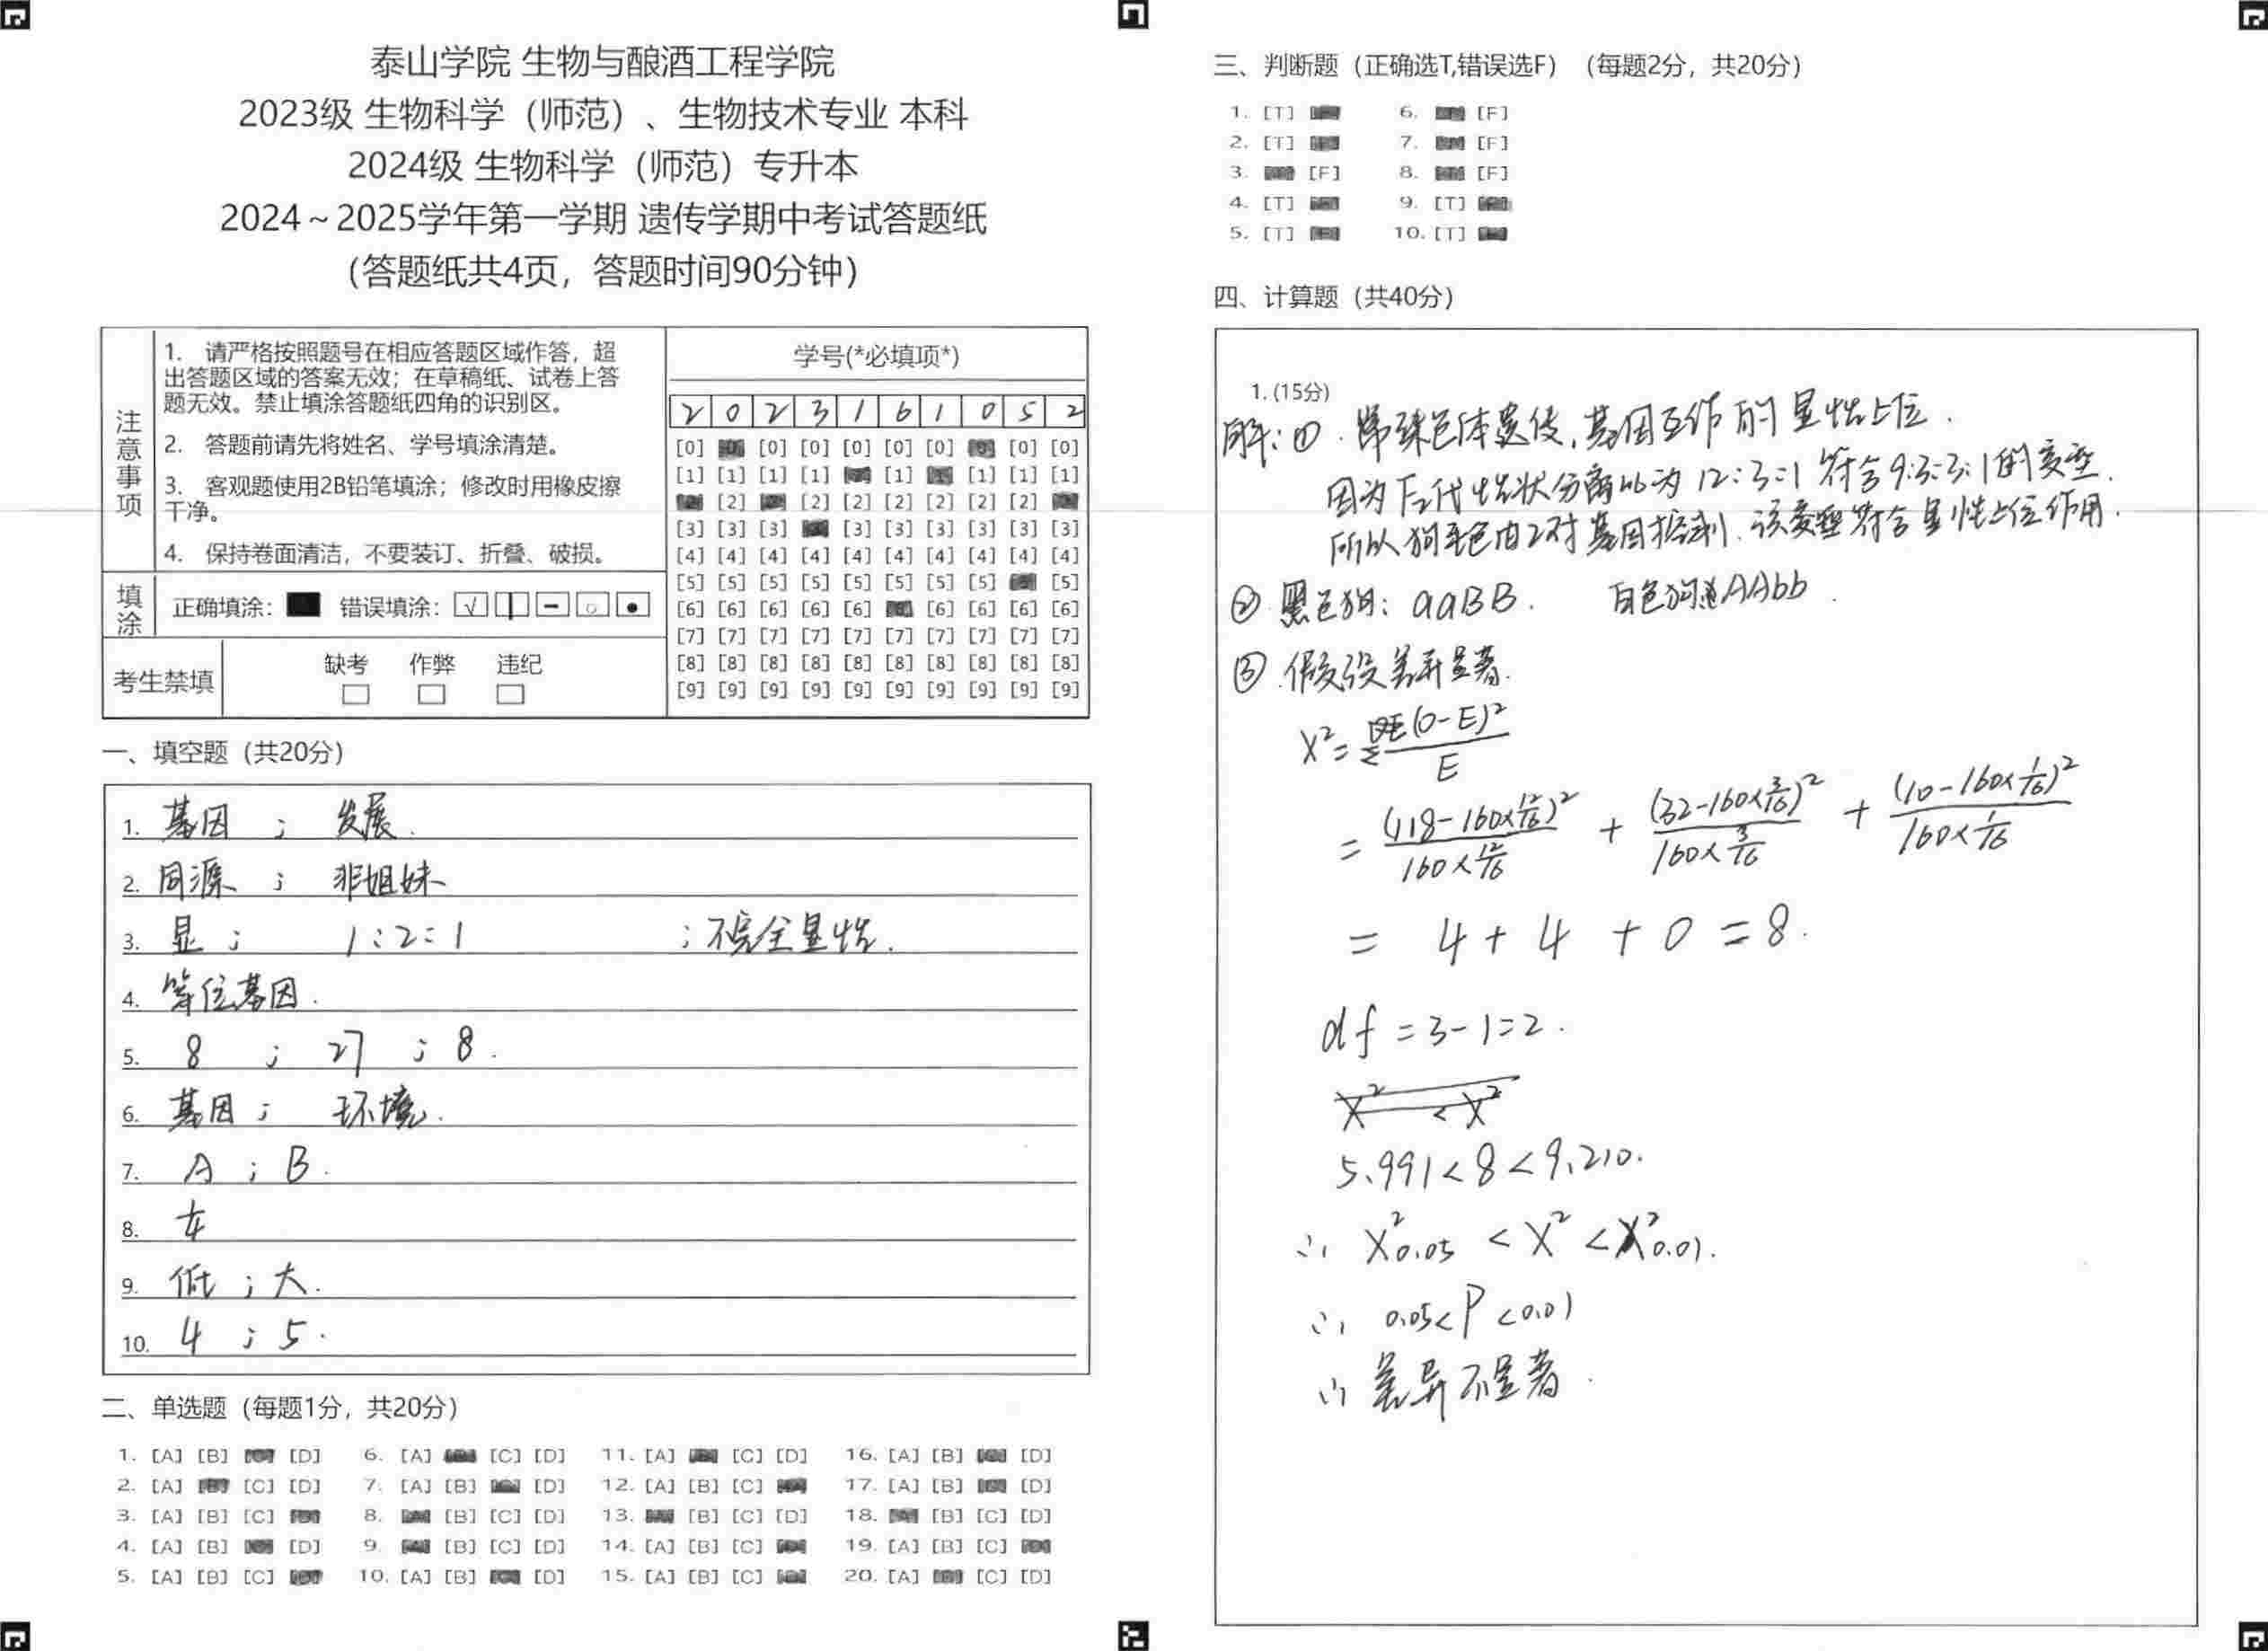 泰山学院 生物与酿酒工程学院
2023级 生物科学（师范）、生物技术专业 本科
2024级 生物科学（师范）专升本
2024～2025学年第一学期 遗传学期中考试答题纸
（答题纸共4页，答题时间90分钟）
注意事项
1. 请严格按照题号在相应答题区域作答，超
出答题区域的答案无效；在草稿纸、试卷上答
题无效。禁止填涂答题纸四角的识别区。
2. 答题前请先将姓名、学号填涂清楚。
3. 客观题使用2B铅笔填涂；修改时用橡皮擦
干净。
4. 保持卷面清洁，不要装订、折叠、破损。
填涂
正确填涂： 错误填涂：
考生禁填
缺考 作弊 违纪
学号(*必填项*)
2 0 2 3 1 6 1 0 5 2
[0] [0] [0] [0] [0] [0] [0] [0]
[1] [1] [1] [1] [1] [1] [1] [1]
[2] [2] [2] [2] [2] [2] [2]
[3] [3] [3] [3] [3] [3] [3] [3] [3]
[4] [4] [4] [4] [4] [4] [4] [4] [4] [4]
[5] [5] [5] [5] [5] [5] [5] [5] [5]
[6] [6] [6] [6] [6] [6] [6] [6] [6]
[7] [7] [7] [7] [7] [7] [7] [7] [7] [7]
[8] [8] [8] [8] [8] [8] [8] [8] [8] [8]
[9] [9] [9] [9] [9] [9] [9] [9] [9] [9]
一、填空题（共20分）
1. 基因 ； 发展.
2. 同源 ； 非姐妹
3. 显 ； 1：2：1 ；不完全显性.
4. 等位基因.
5. 8 ； 27 ； 8.
6. 基因 ； 环境.
7. A ； B.
8. 左
9. 低 ；大.
10. 4 ； 5.
二、单选题（每题1分，共20分）
1. [A] [B] [D] 6. [A] [C] [D] 11. [A] [C] [D] 16. [A] [B] [D]
2. [A] [C] [D] 7. [A] [B] [D] 12. [A] [B] [C] 17. [A] [B] [D]
3. [A] [B] [C] 8. [B] [C] [D] 13. [B] [C] [D] 18. [B] [C] [D]
4. [A] [B] [D] 9. [B] [C] [D] 14. [A] [B] [C] 19. [A] [B] [C]
5. [A] [B] [C] 10. [A] [B] [D] 15. [A] [B] [C] 20. [A] [C] [D]
三、判断题（正确选T,错误选F）（每题2分，共20分）
1. [T] 6. [F]
2. [T] 7. [F]
3. [F] 8. [F]
4. [T] 9. [T]
5. [T] 10. [T]
四、计算题（共40分）
1. (15分)
解：①. 常染色体遗传，基因互作的显性上位.
因为F₂代性状分离比为 12：3：1 符合9:3:3:1的变型.
所以狗毛色由2对基因控制. 该变型符合显性上位作用.
② 黑色狗：aaBB. 白色狗 AAbb.
③ 假设差异显著.
X² = Σ(O-E)²/E
= (118-160×12/16)²/(160×12/16) + (32-160×3/16)²/(160×3/16) + (10-160×1/16)²/(160×1/16)
= 4 + 4 + 0 = 8.
df = 3-1=2.
X² < X²
5.991 < 8 < 9.210.
∴ X²0.05 < X² < X²0.01.
∴ 0.05 < P < 0.01
∴ 差异不显著.